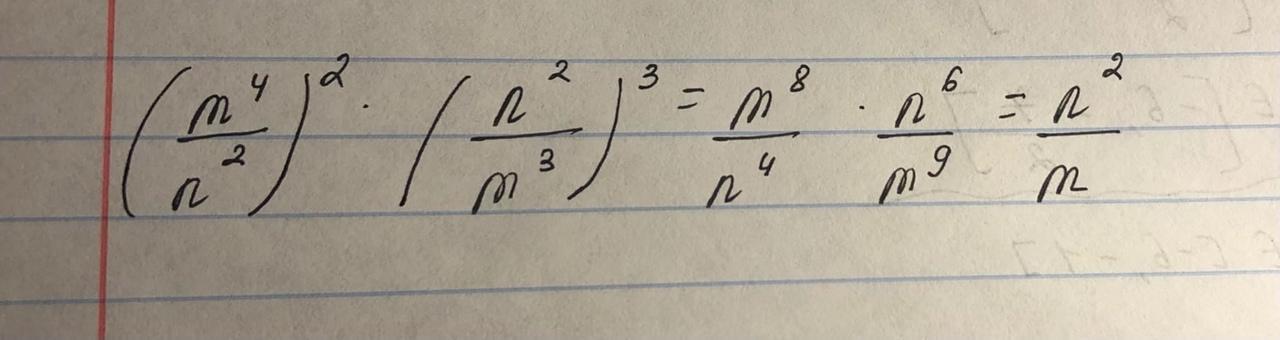 (m⁴/n²)² · (n²/m³)³ = m⁸/n⁴ · n⁶/m⁹ = n²/m